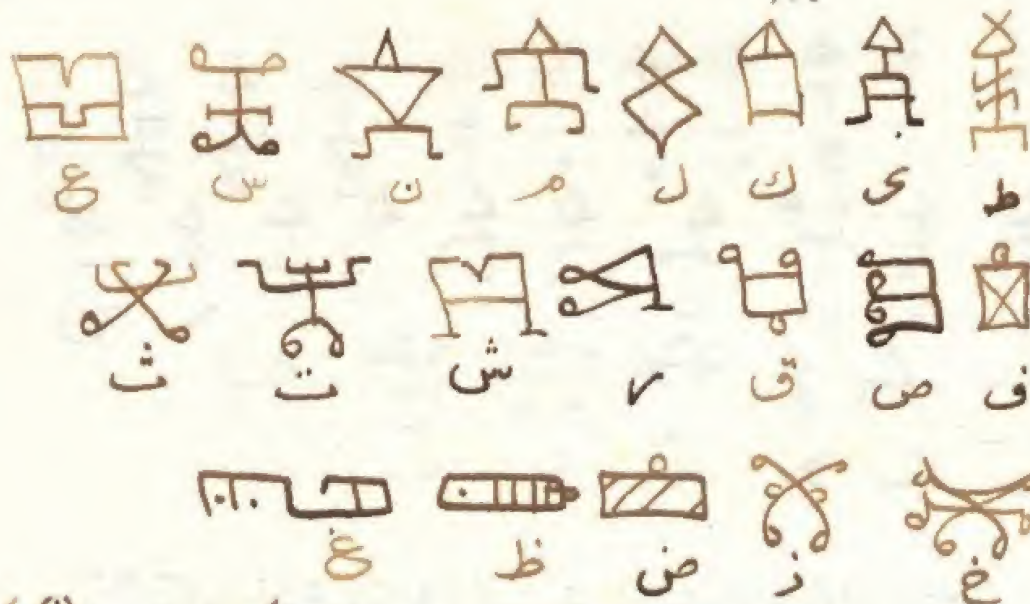 ط ى ك ل م ن س ع
ف ص ق ر ش ت ث
خ ذ ض ظ غ